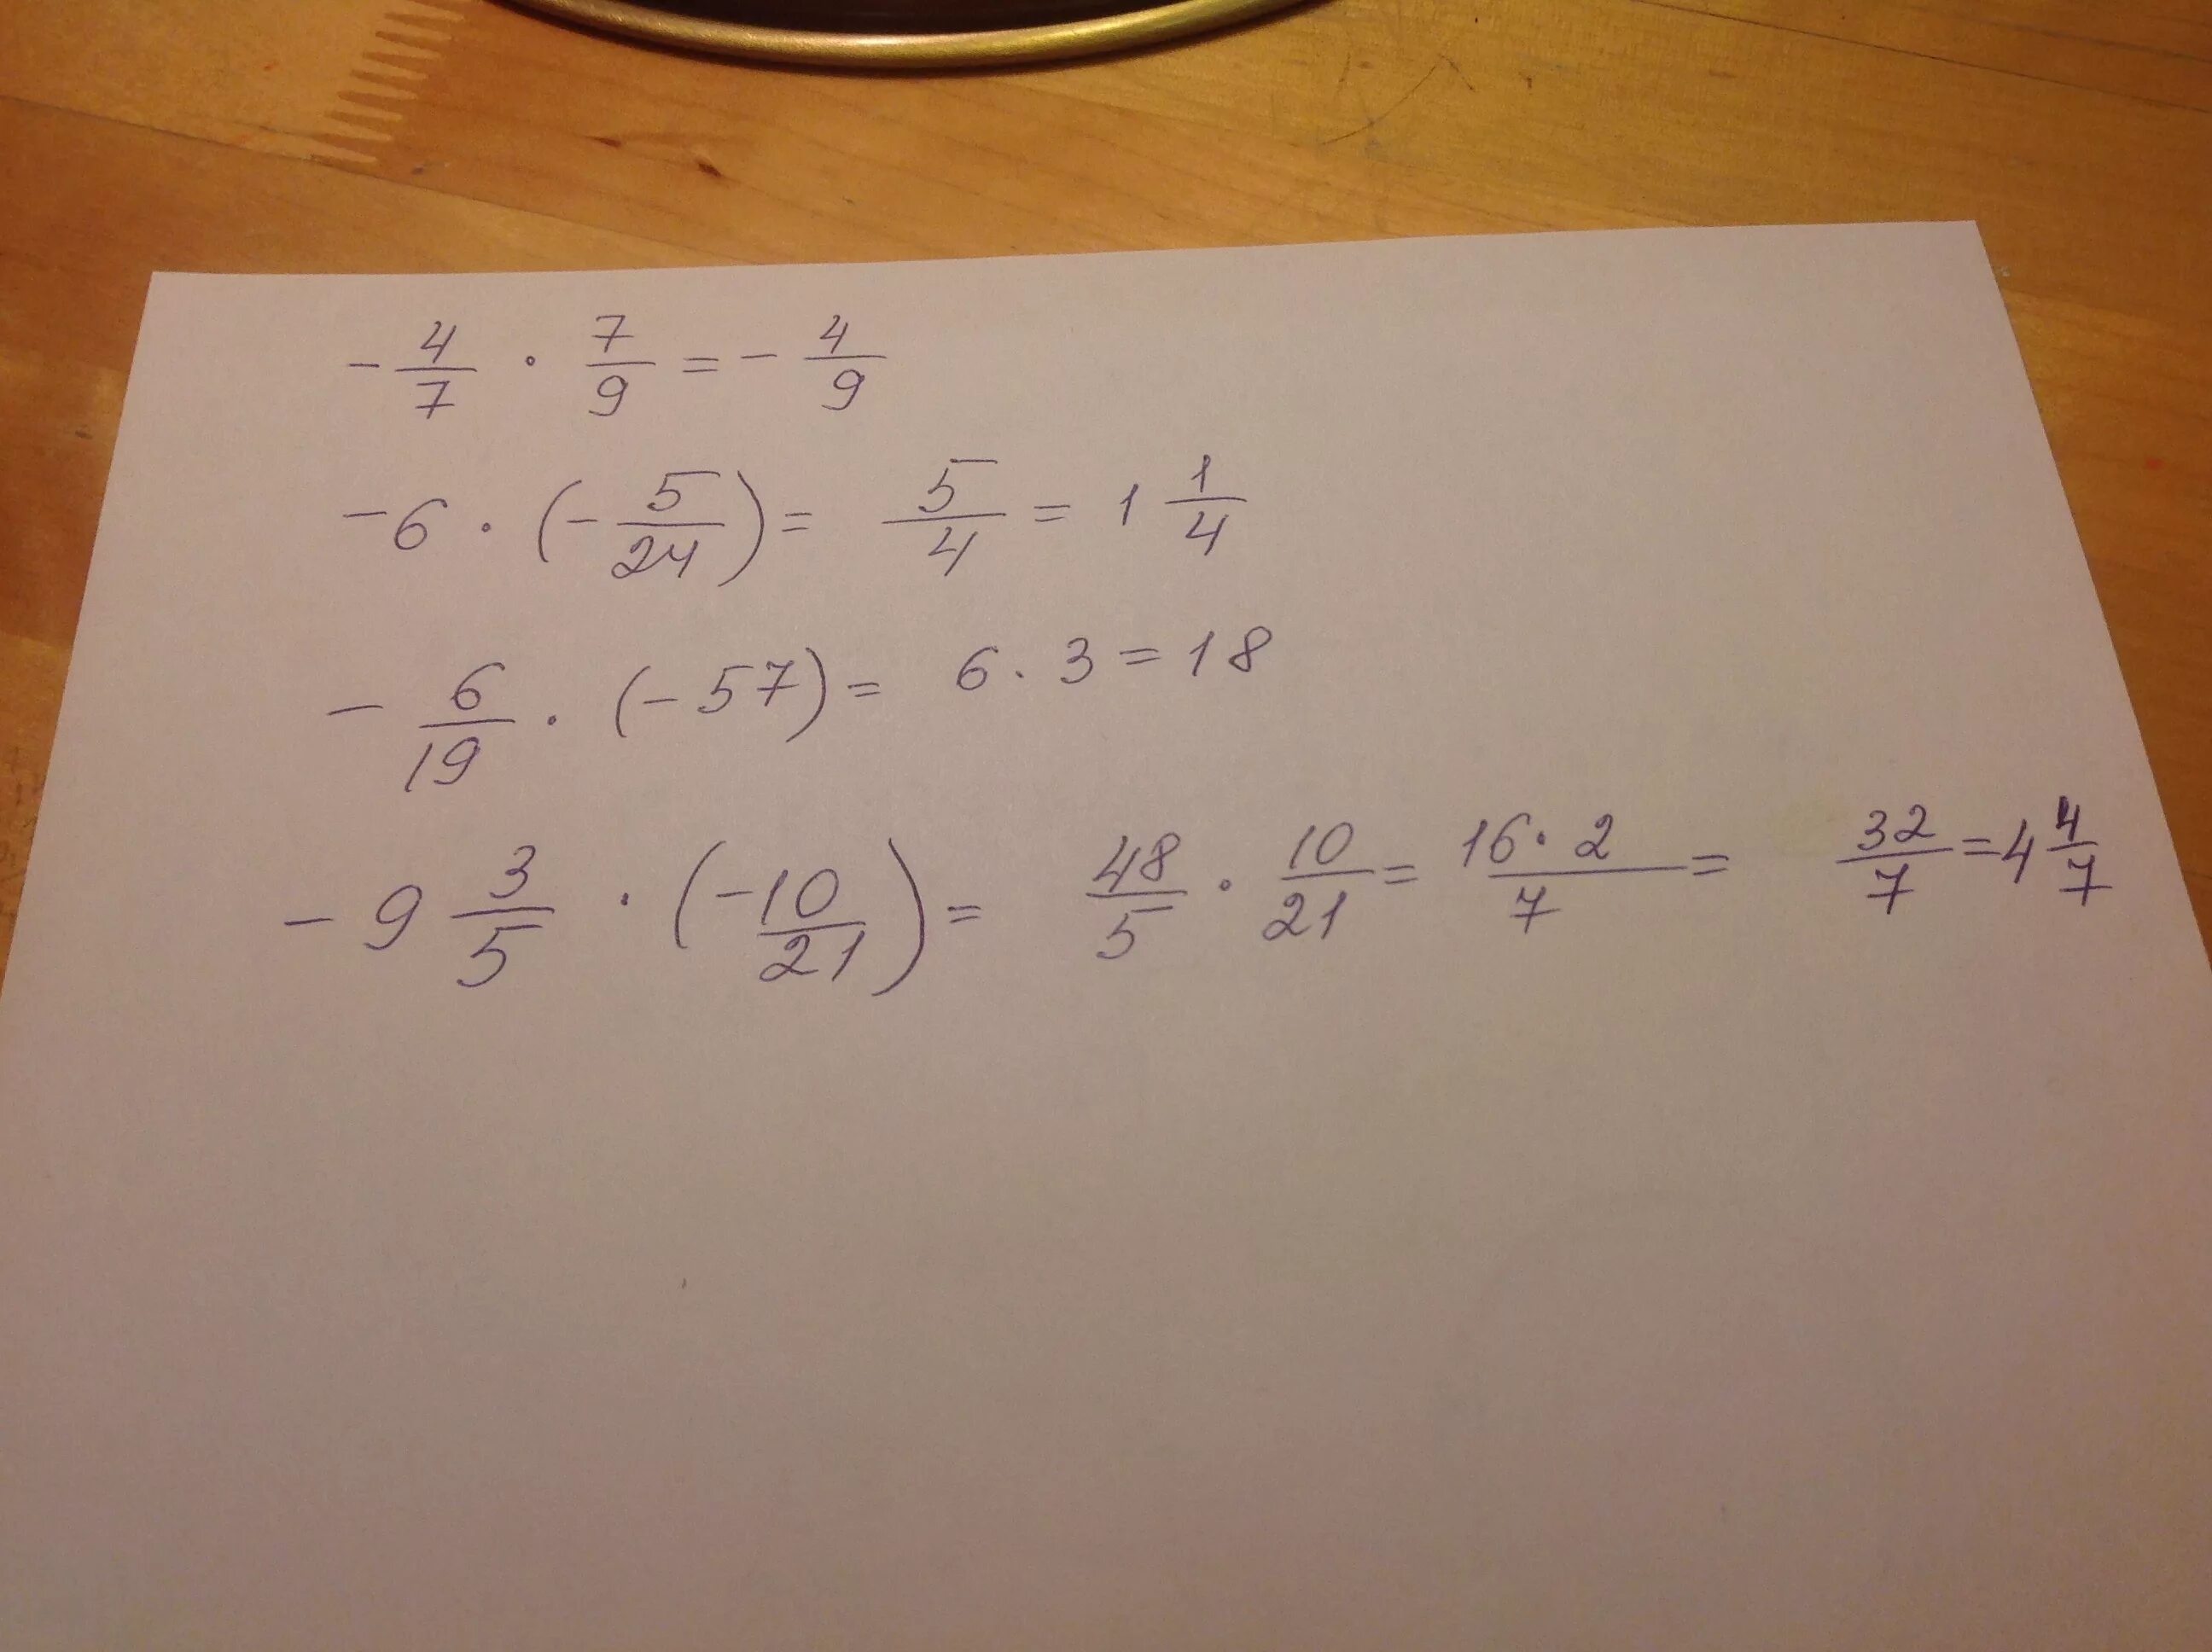 -4/7 · 7/9 = -4/9
-6 · (-5/24) = 5/4 = 1 1/4
-6/19 · (-57) = 6 · 3 = 18
-9 3/5 · (-10/21) = 48/5 · 10/21 = 16·2/7 = 32/7 = 4 4/7